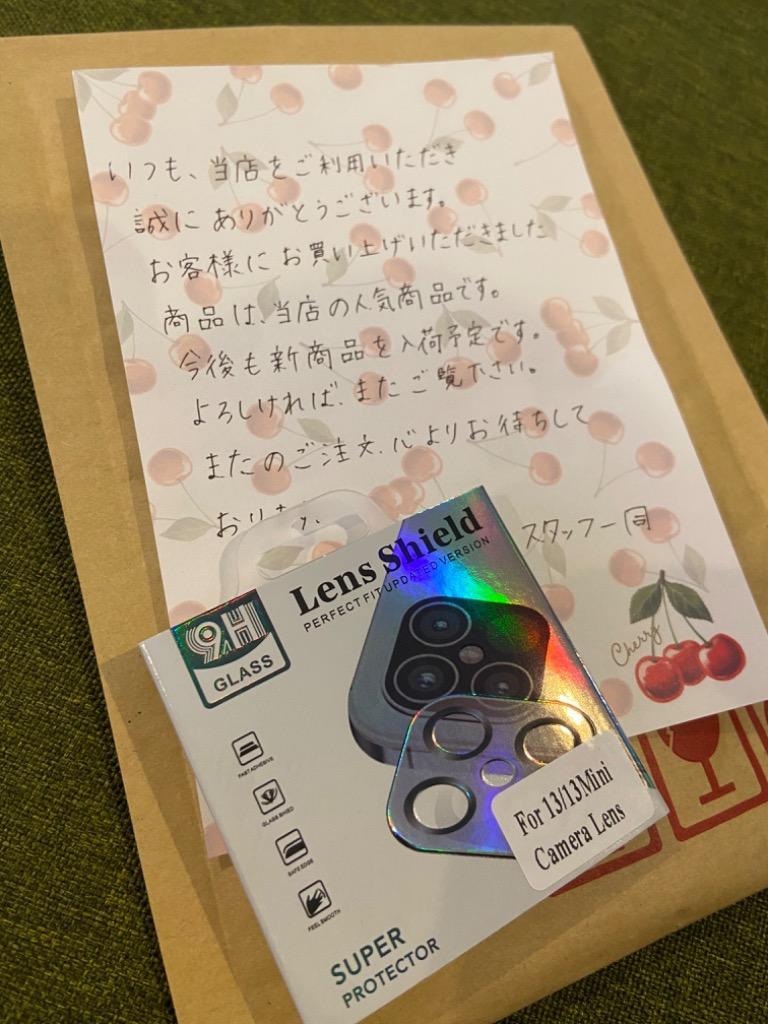 いつも、当店をご利用いただき
誠にありがとうございます。
お客様にお買い上げいただきました
商品は、当店の人気商品です。
今後も新商品を入荷予定です。
よろしければ、またご覧下さい。
またのご注文、心よりお待ちして
おります。
スタッフ一同
Cherry
Lens Shield
PERFECT FIT UPDATED VERSION
9H
GLASS
FAST ADHESIVE
GLASS SHIED
SAFE EDGE
FEEL SMOOTH
For 13/13Mini
Camera Lens
SUPER
PROTECTOR